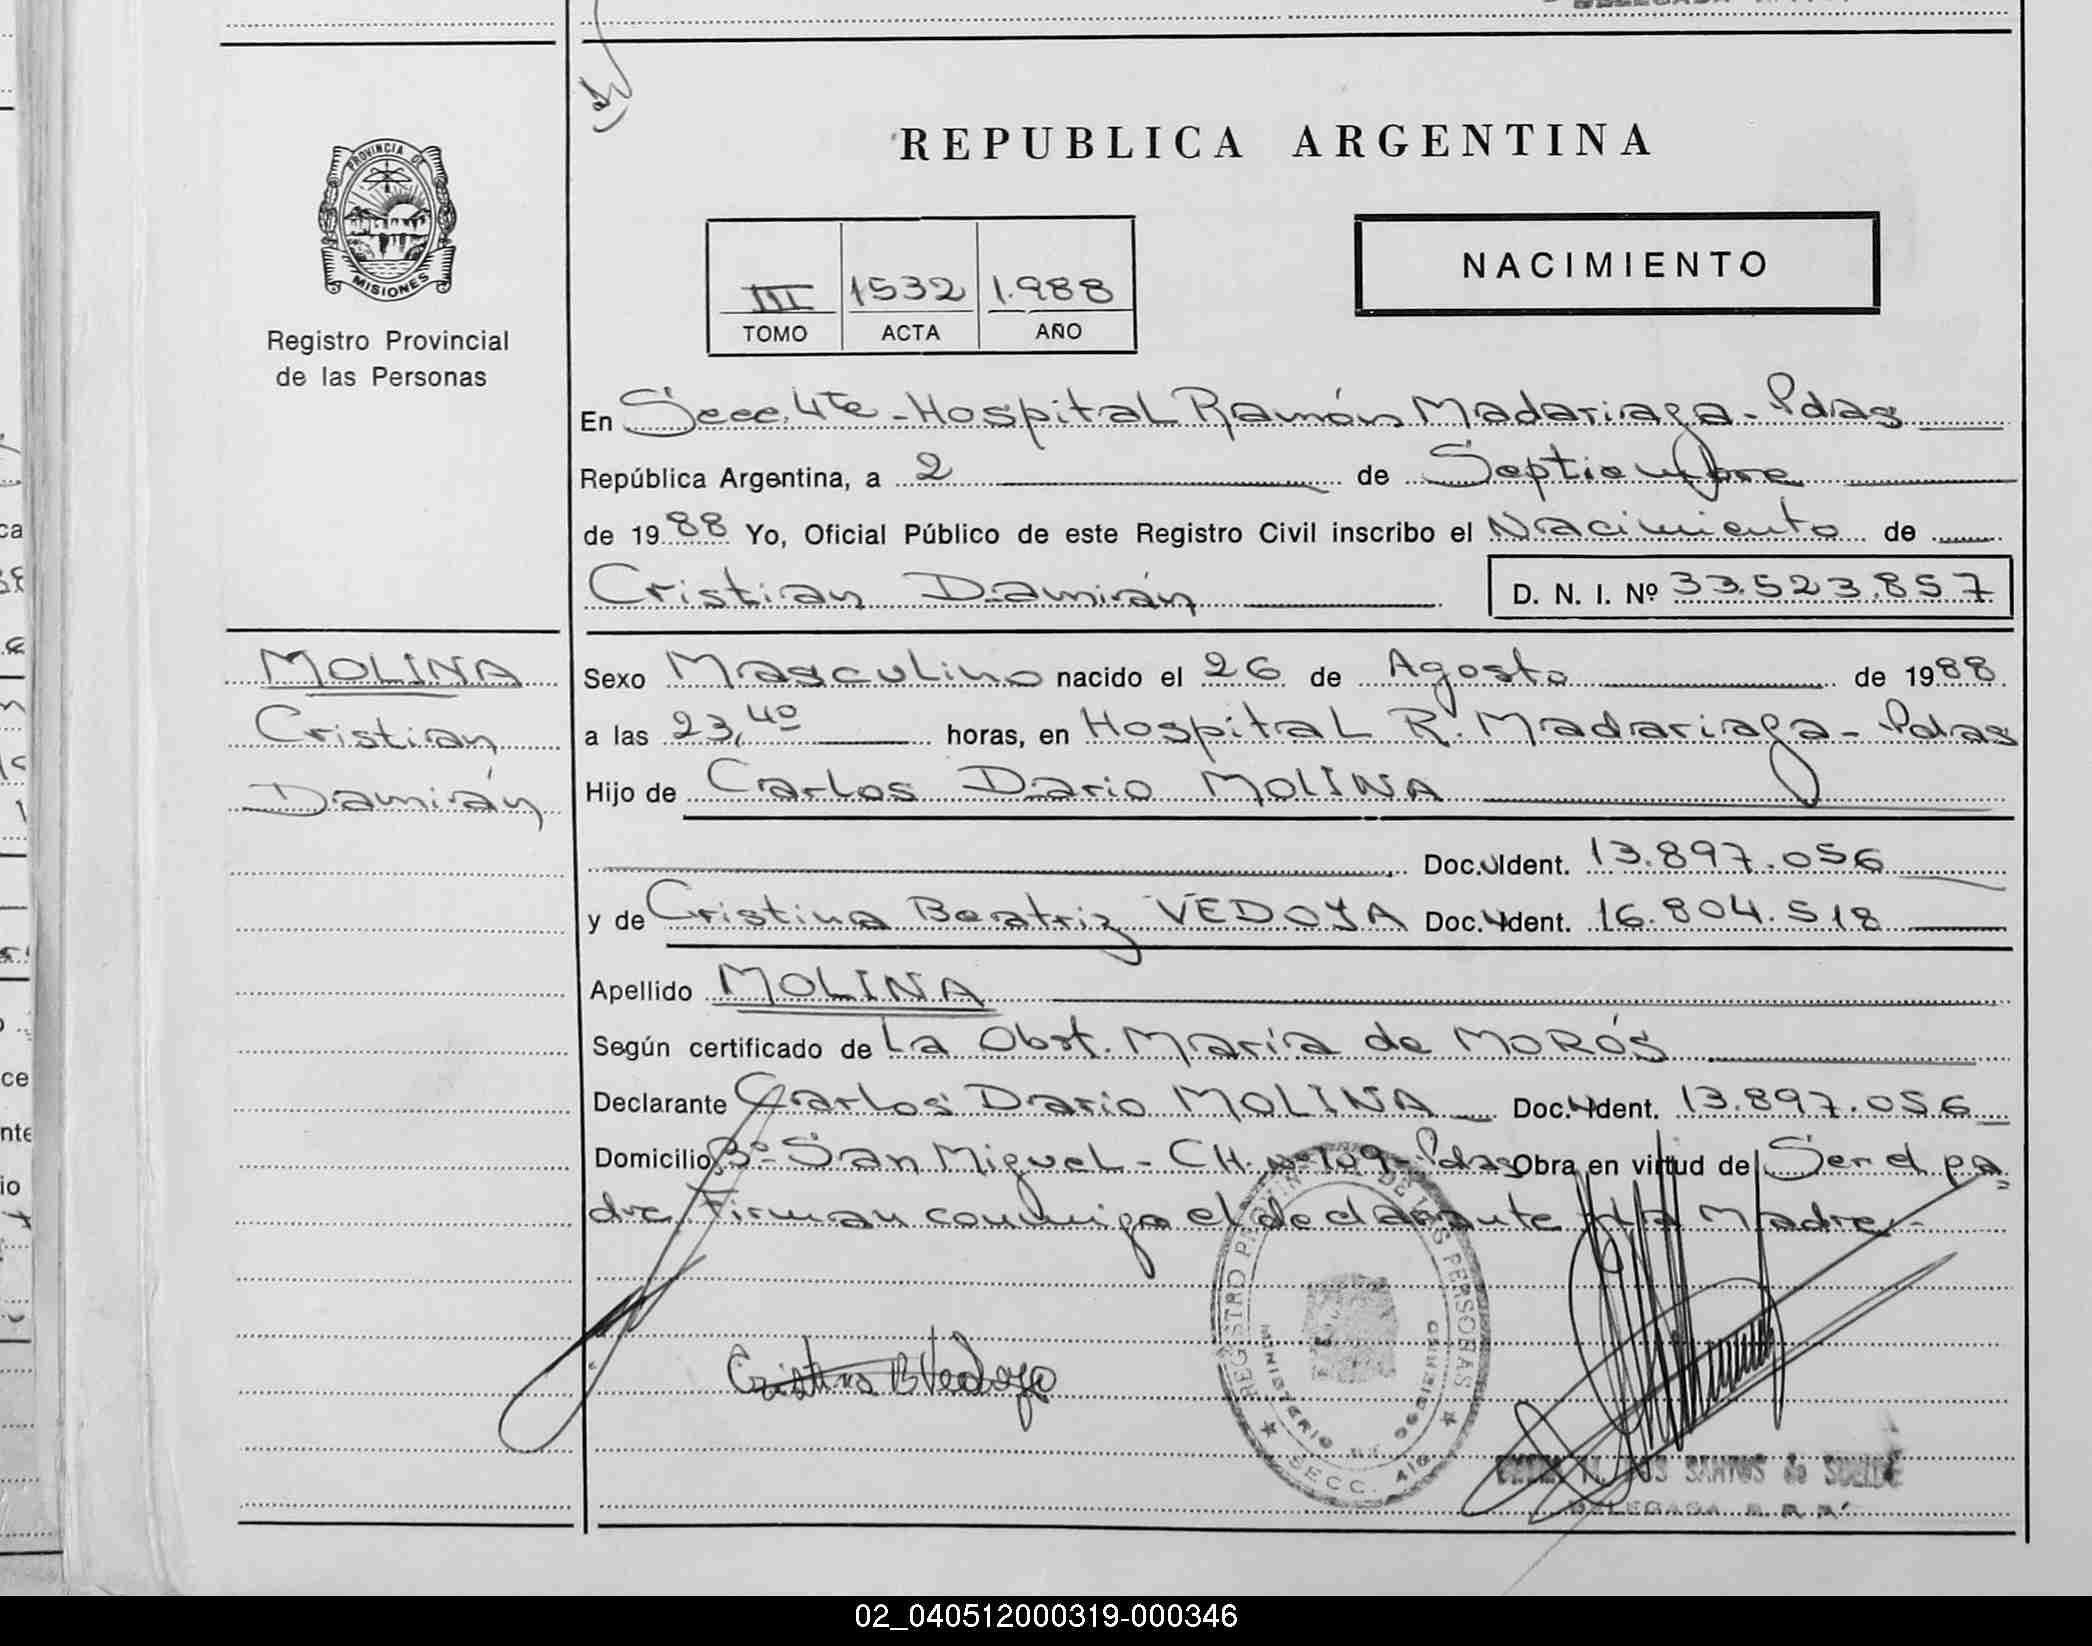 PROVINCIA DE
MISIONES
Registro Provincial
de las Personas
MOLINA
Cristian
Damián
REPUBLICA ARGENTINA
III 1532 1.988
TOMO ACTA AÑO
NACIMIENTO
En Secc. 4te - Hospital Ramón Madariaga - Pdas
República Argentina, a 2 de Septiembre
de 1988 Yo, Oficial Público de este Registro Civil inscribo el Nacimiento de
Cristian Damián D. N. I. Nº 33.523.857
Sexo Masculino nacido el 26 de Agosto de 1988
a las 23,40 horas, en Hospital R. Madariaga - Pdas
Hijo de Carlos Dario MOLINA
Doc. Ident. 13.897.056
y de Cristina Beatriz VEDOYA Doc. Ident. 16.804.518
Apellido MOLINA
Según certificado de La Obst. María de MORÓS
Declarante Carlos Dario MOLINA Doc. Ident. 13.897.056
Domicilio Bº San Miguel - CH. Nº 109 - Pdas Obra en virtud de Ser el pa=
dre. Firman conmigo el declarante y la Madre.-
REGISTRO DE LAS PERSONAS
MINISTERIO DE GOBIERNO
SECC.
Cristina B Vedoya
SANTOS de
DELEGADA
02_040512000319-000346